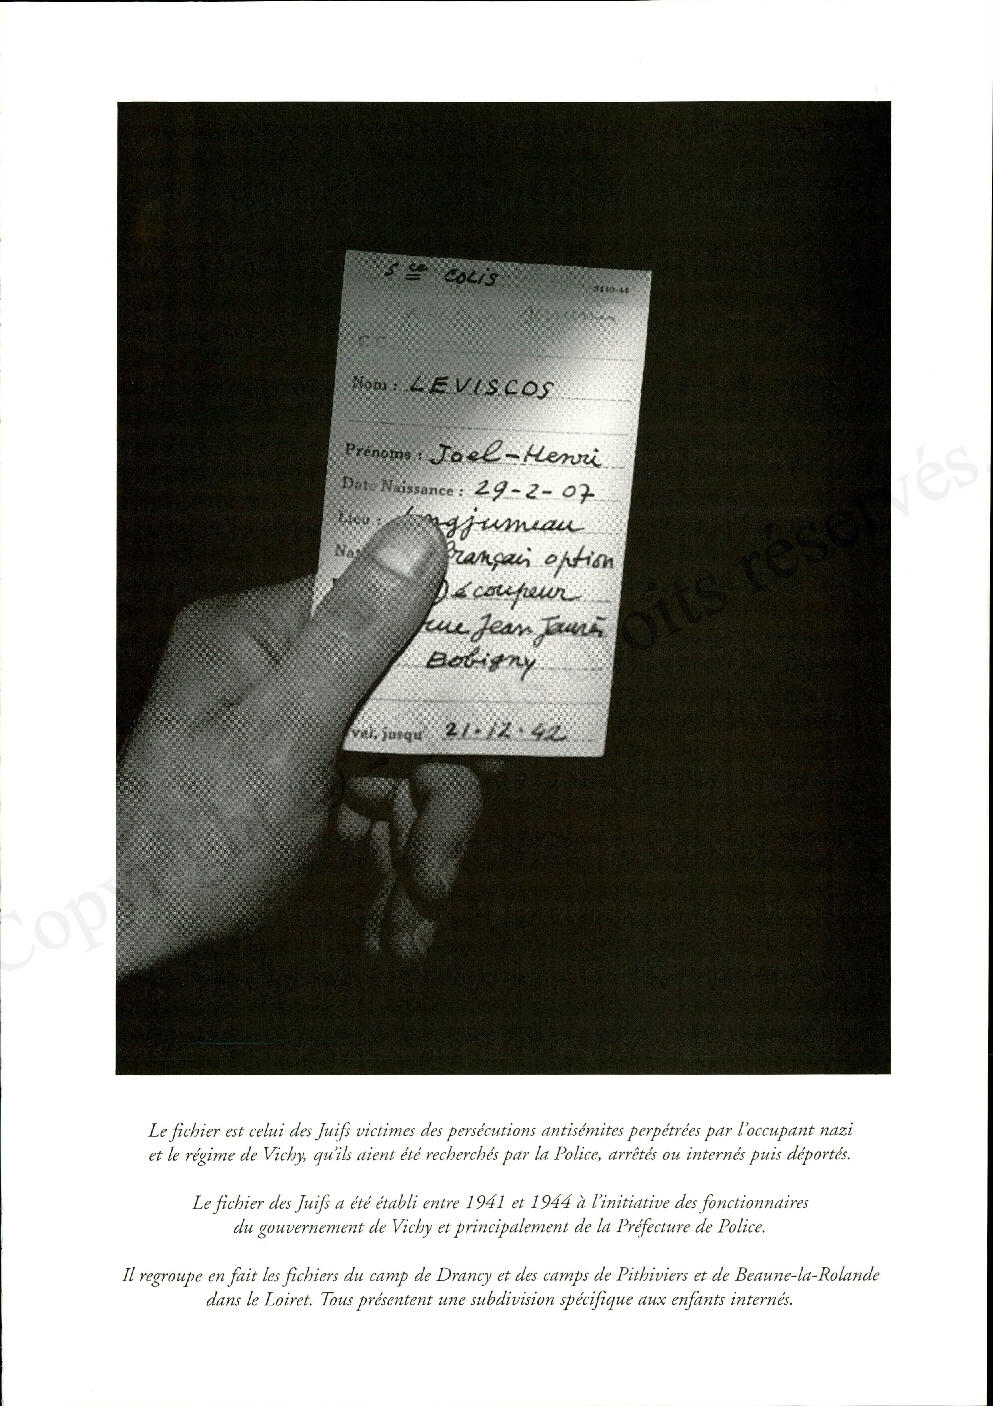 Sce COLIS
3140-44
C C
Nom : LEVISCOS
Prénoms : Joel-Henri
Date Naissance : 29-2-07
Lieu : Longjumeau
Na français option
Découpeur
rue Jean Jaurès
Bobigny
val. jusqu' 21.12.42
Copy oits réservés.
Le fichier est celui des Juifs victimes des persécutions antisémites perpétrées par l'occupant nazi
et le régime de Vichy, qu'ils aient été recherchés par la Police, arrêtés ou internés puis déportés.
Le fichier des Juifs a été établi entre 1941 et 1944 à l'initiative des fonctionnaires
du gouvernement de Vichy et principalement de la Préfecture de Police.
Il regroupe en fait les fichiers du camp de Drancy et des camps de Pithiviers et de Beaune-la-Rolande
dans le Loiret. Tous présentent une subdivision spécifique aux enfants internés.